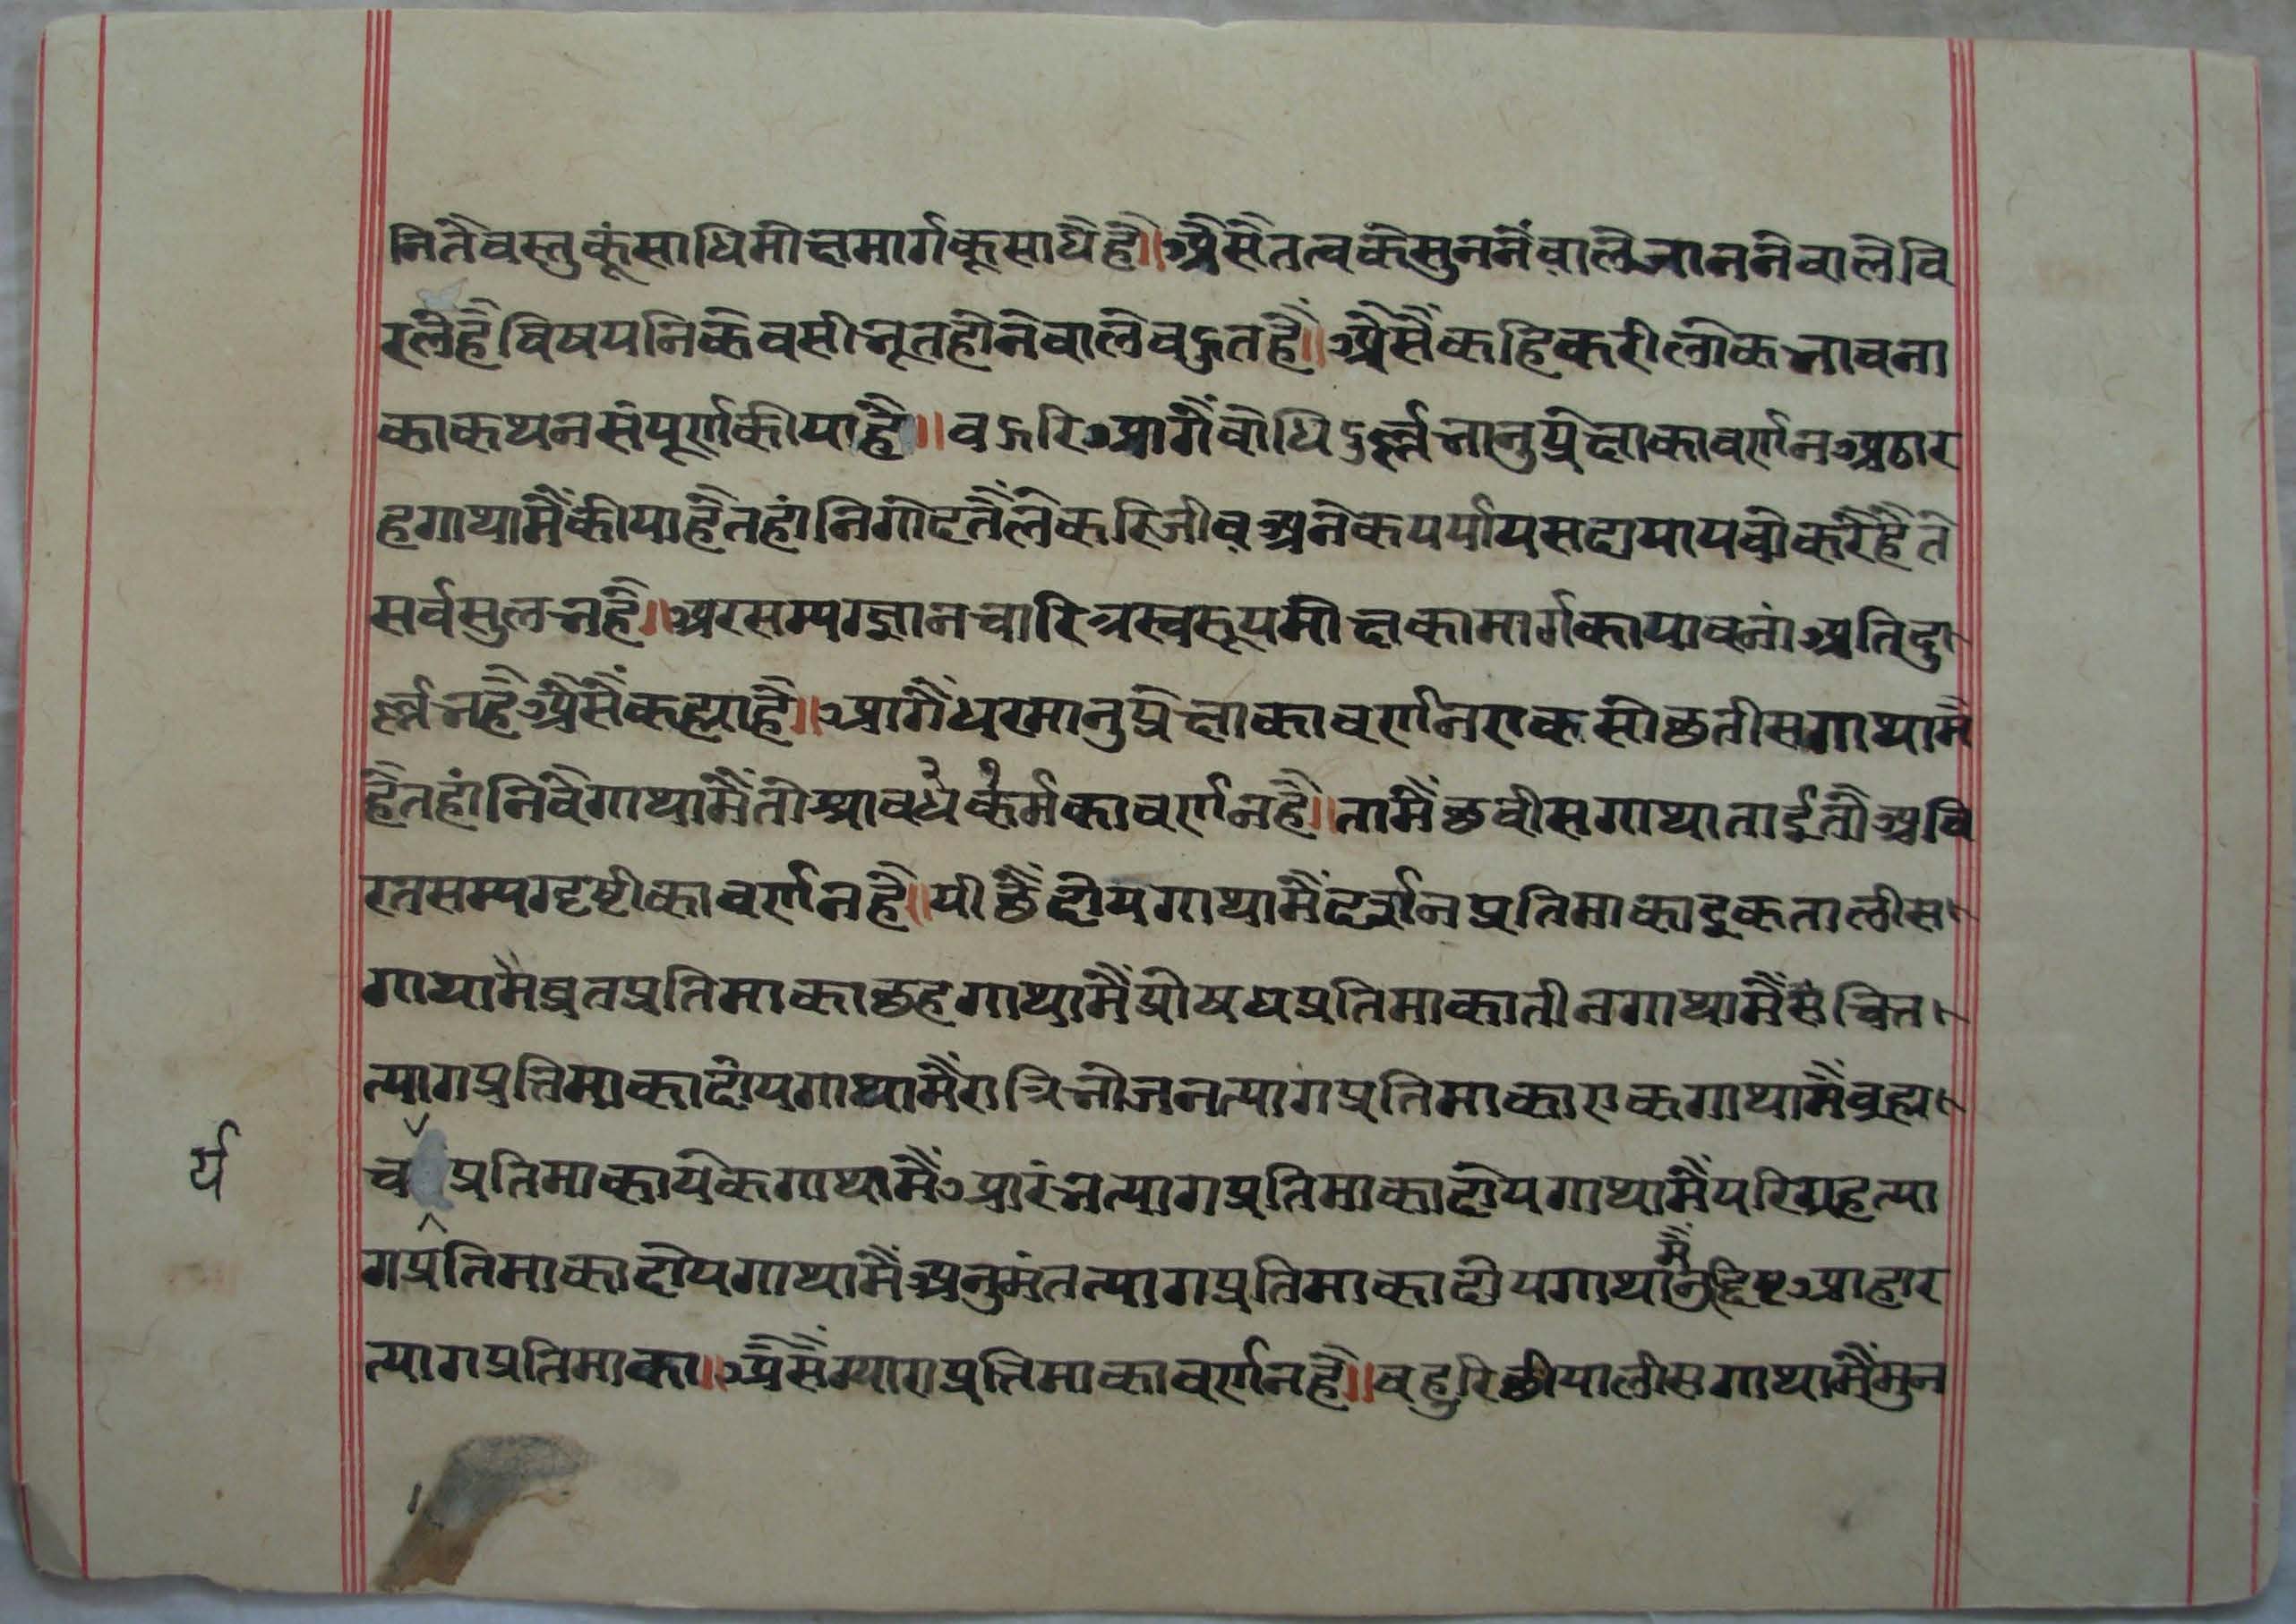 नितैवस्तुकूंसाधिमोक्षमार्गकूसाधैहै॥अैसैतत्वकेसुननेंवालेजाननेवालेवि
रलेहैविषयनिकेवसीभूतहोनेवालेबहुतहैं॥अैसैंकहिकरीलोकभावना
काकथनसंपूर्णकीयाहै॥बहुरिआगैंबोधिदुर्ल्लभानुप्रेक्षाकावर्णनअठार
हगाथामैंकीयाहैतहांनिगोदतैंलेकरिजीवअनेकपर्यायसदापायवोकरैहैते
सर्वसुलभहै॥अरसम्यग्ज्ञानचारित्रस्वरूपमोक्षकामार्गकापावनांअतिदु
र्ल्लभहैअैसैंकह्याहै॥आगैंधरमानुप्रेक्षाकावर्णनएकसोछतीसगाथामै
हैतहांनिवैगाथामैंतोश्रावधर्ककर्मकावर्णनहै॥तामैंछवीसगाथाताईतौअवि
रतसम्यग्दृष्टीकावर्णनहै॥पीछैंदोयगाथामैंदर्शनप्रतिमाकाइकतालीस
गाथामैंव्रतप्रतिमाकाछहगाथामैंप्रोषधप्रतिमाकातीनगाथामैंसचित्त
त्यागप्रतिमाकादोयगाथामैंरात्रिभोजनत्यागप्रतिमाकाएकगाथामैंब्रह्म
च प्रतिमाकायेकगाथामैंआरंभत्यागप्रतिमाकादोयगाथामैंपरिग्रहत्या
र्य
गप्रतिमाकादोयगाथामैंअनुमंतत्यागप्रतिमाकादोयगाथामैंउद्दिष्टआहार
त्यागप्रतिमाका॥अैसैंग्याराप्रतिमाकावर्णनहै॥बहुरिछीयालीसगाथामैंमुन